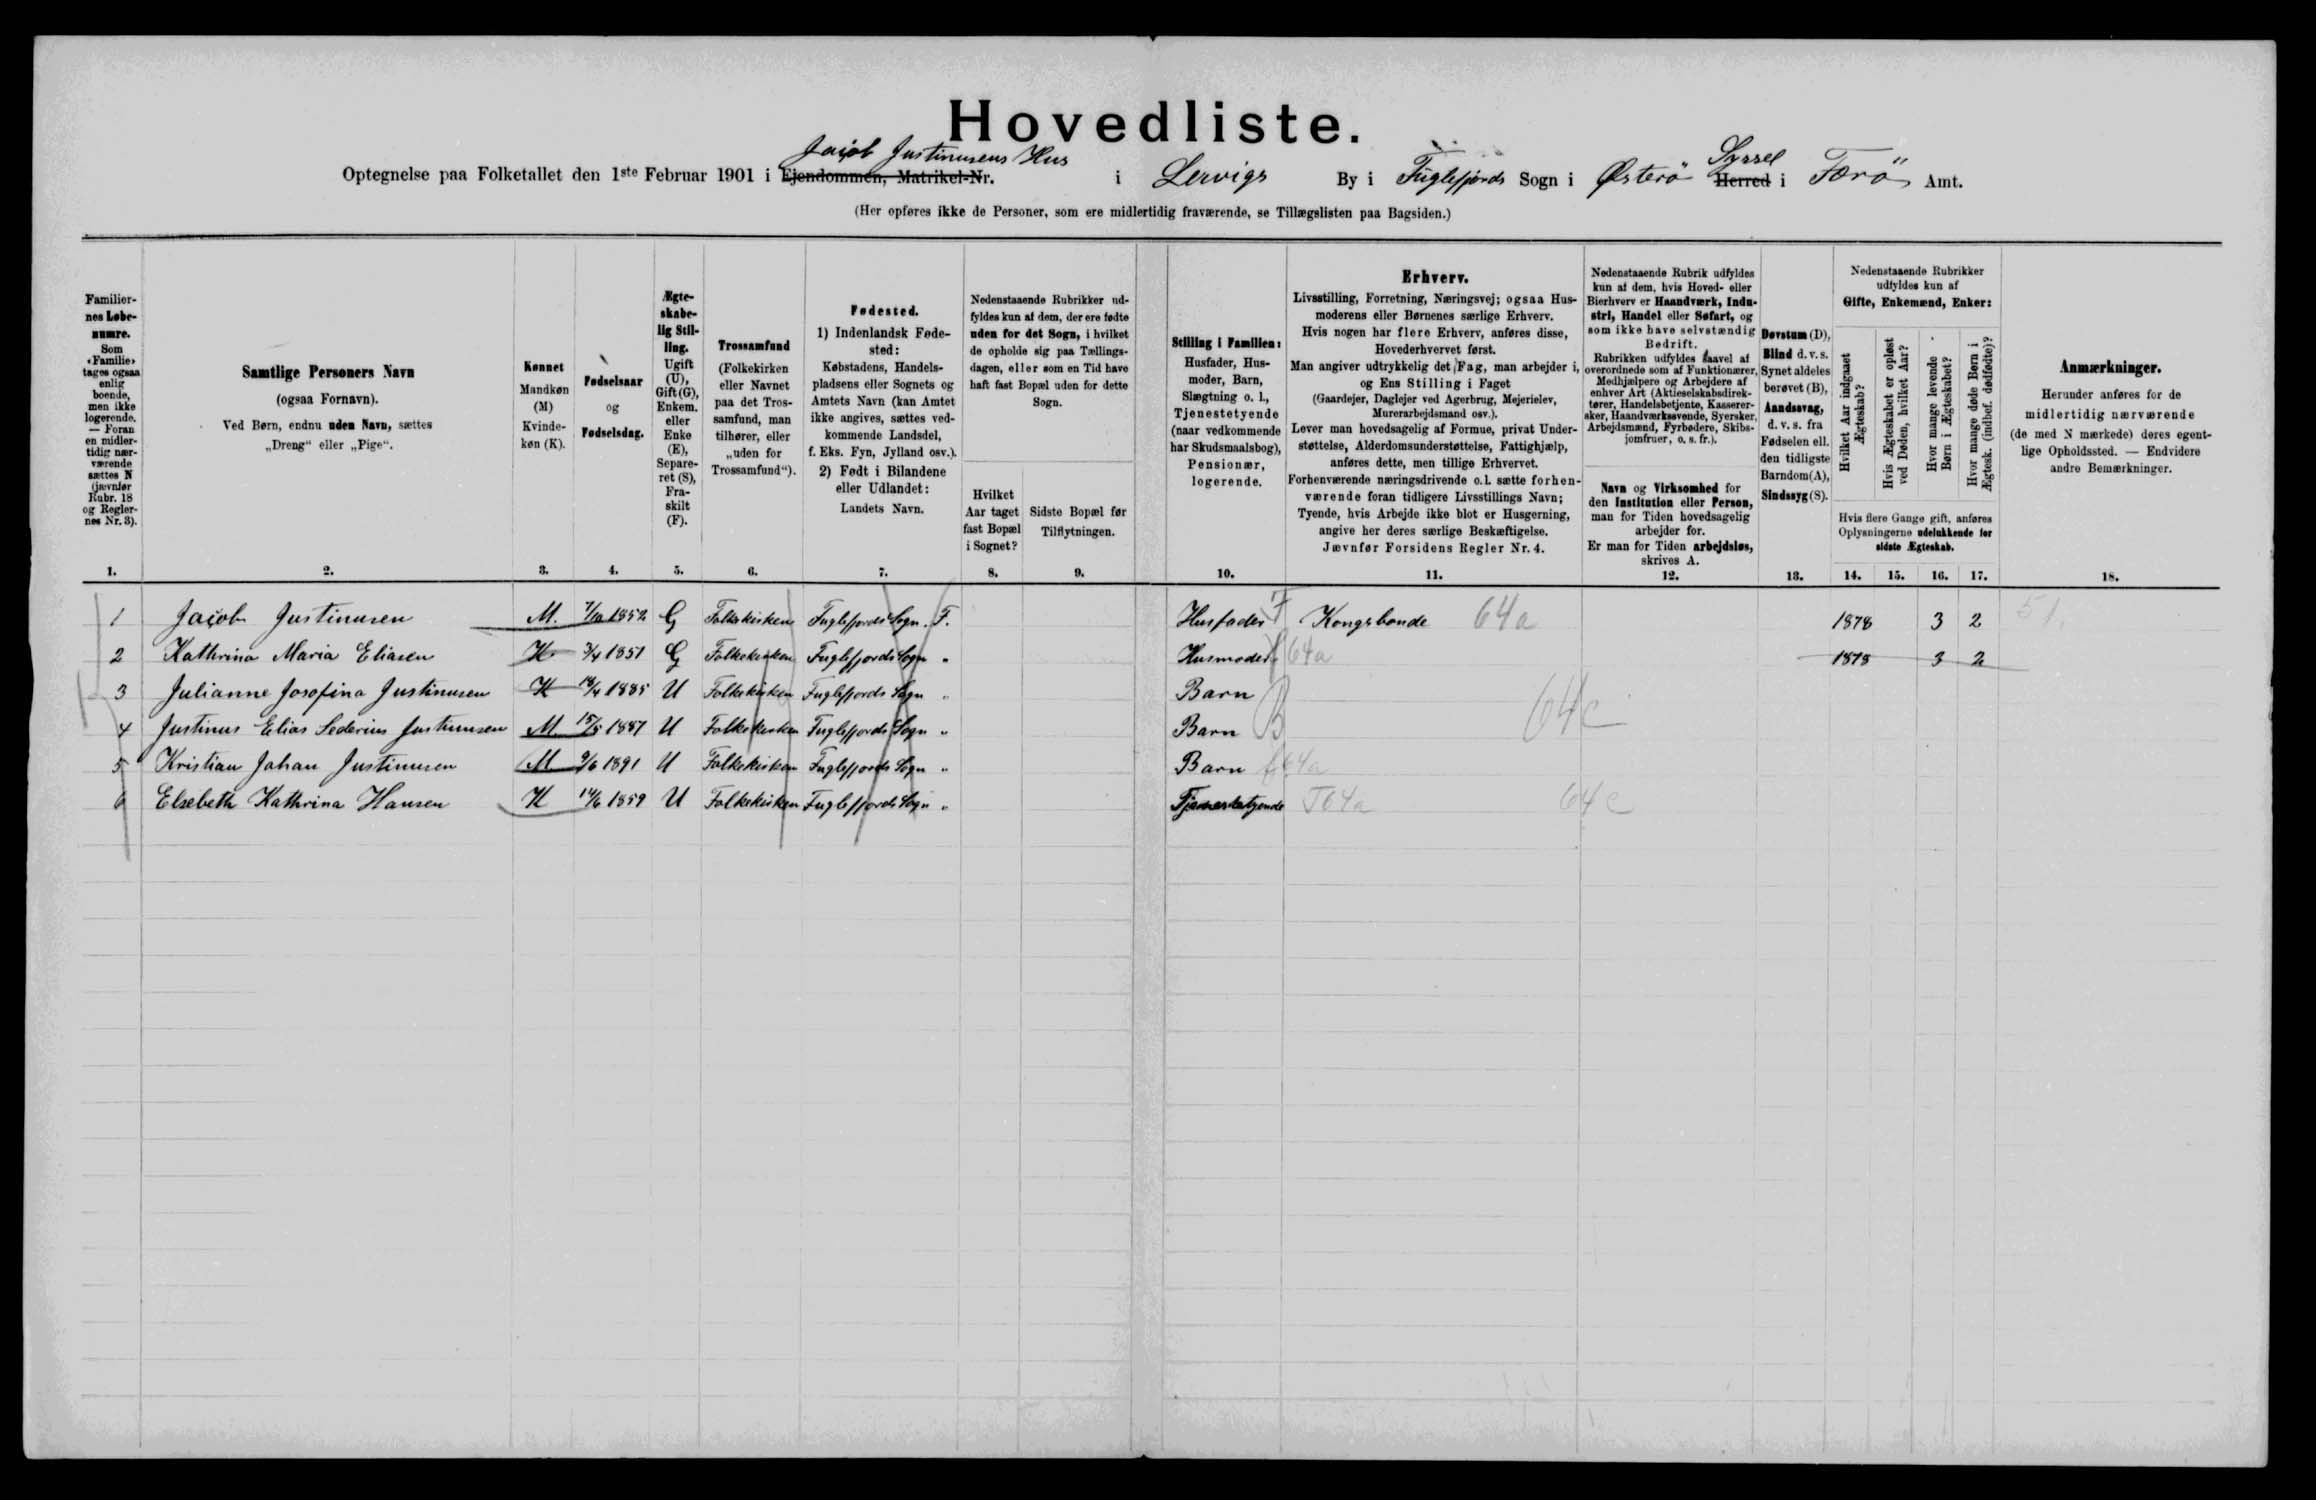 Hovedliste.
Jacob Justinusens Hus
Syssel
Optegnelse paa Folketallet den 1ste Februar 1901 i Ejendommen, Matrikel-Nr. i Lervigs By i Fuglefjords Sogn i Østerö Herred i Færö Amt.
(Her opføres ikke de Personer, som ere midlertidig fraværende, se Tillægslisten paa Bagsiden.)
Familier-
nes Løbe-
numre.
Som
«Familie»
tages ogsaa
enlig
boende,
men ikke
logerende.
— Foran
en midler-
tidig nær-
værende
sættes N
(jævnfør
Rubr. 18
og Regler-
nes Nr. 3).
1.
Samtlige Personers Navn
(ogsaa Fornavn).
Ved Børn, endnu uden Navn, sættes
„Dreng“ eller „Pige“.
2.
Kønnet
Mandkøn
(M)
Kvinde-
køn (K).
3.
Fødselsaar
og
Fødselsdag.
4.
Ægte-
skabe-
lig Stil-
ling.
Ugift
(U),
Gift (G),
Enkem.
eller
Enke
(E),
Separe-
ret (S),
Fra-
skilt
(F).
5.
Trossamfund
(Folkekirken
eller Navnet
paa det Tros-
samfund, man
tilhører, eller
„uden for
Trossamfund“).
6.
Fødested.
1) Indenlandsk Føde-
sted:
Købstadens, Handels-
pladsens eller Sognets og
Amtets Navn (kan Amtet
ikke angives, sættes ved-
kommende Landsdel,
f. Eks. Fyn, Jylland osv.).
2) Født i Bilandene
eller Udlandet:
Landets Navn.
7.
Nedenstaaende Rubrikker ud-
fyldes kun af dem, der ere fødte
uden for det Sogn, i hvilket
de opholde sig paa Tællings-
dagen, eller som en Tid have
haft fast Bopæl uden for dette
Sogn.
Hvilket
Aar taget
fast Bopæl
i Sognet?
8.
Sidste Bopæl før
Tilflytningen.
9.
Stilling i Familien:
Husfader, Hus-
moder, Barn,
Slægtning o. l.,
Tjenestetyende
(naar vedkommende
har Skudsmaalsbog),
Pensionær,
logerende.
10.
Erhverv.
Livsstilling, Forretning, Næringsvej; ogsaa Hus-
moderens eller Børnenes særlige Erhverv.
Hvis nogen har flere Erhverv, anføres disse,
Hovederhvervet først.
Man angiver udtrykkelig det Fag, man arbejder i,
og Ens Stilling i Faget
(Gaardejer, Daglejer ved Agerbrug, Mejerielev,
Murerarbejdsmand osv.).
Lever man hovedsagelig af Formue, privat Under-
støttelse, Alderdomsunderstøttelse, Fattighjælp,
anføres dette, men tillige Erhvervet.
Forhenværende næringsdrivende o.l. sætte forhen-
værende foran tidligere Livsstillings Navn;
Tyende, hvis Arbejde ikke blot er Husgerning,
angive her deres særlige Beskæftigelse.
Jævnfør Forsidens Regler Nr. 4.
11.
Nedenstaaende Rubrik udfyldes
kun af dem, hvis Hoved- eller
Bierhverv er Haandværk, Indu-
stri, Handel eller Søfart, og
som ikke have selvstændig
Bedrift.
Rubrikken udfyldes saavel af
overordnede som af Funktionærer,
Medhjælpere og Arbejdere af
enhver Art (Aktieselskabsdirek-
tører, Handelsbetjente, Kasserer-
sker, Haandværkssvende, Syersker,
Arbejdsmænd, Fyrbødere, Skibs-
jomfruer, o. s. fr.).
Navn og Virksomhed for
den Institution eller Person,
man for Tiden hovedsagelig
arbejder for.
Er man for Tiden arbejdsløs,
skrives A.
12.
Døvstum (D),
Blind d. v. s.
Synet aldeles
berøvet (B),
Aandssvag,
d. v. s. fra
Fødselen ell.
den tidligste
Barndom (A),
Sindssyg (S).
13.
Nedenstaaende Rubrikker
udfyldes kun af
Gifte, Enkemænd, Enker:
Hvilket Aar indgaaet
Ægteskab?
Hvis Ægteskabet er opløst
ved Døden, hvilket Aar?
Hvor mange levende
Børn i Ægteskabet?
Hvor mange døde Børn i
Ægtesk. (indbef. dødfødte)?
Hvis flere Gange gift, anføres
Oplysningerne udelukkende for
sidste Ægteskab.
14. 15. 16. 17.
Anmærkninger.
Herunder anføres for de
midlertidig nærværende
(de med N mærkede) deres egent-
lige Opholdssted. — Endvidere
andre Bemærkninger.
18.
1 Jacob Justinusen M. 7/10 1852 G Folkekirken Fuglefjords Sogn. F. Husfader F Kongsbonde 64a 1878 3 2 51.
2 Kathrina Maria Eliasen K 3/4 1851 G Folkekirken Fuglefjords Sogn " Husmoder 64a 1878 3 2
3 Julianne Josofina Justinusen K 18/4 1885 U Folkekirken Fuglefjords Sogn " Barn
4 Justinus Elias Sederius Justinusen M 15/5 1887 U Folkekirken Fuglefjords Sogn " Barn B 64c
5 Kristian Johan Justinusen M 9/6 1891 U Folkekirken Fuglefjords Sogn " Barn 64a
6 Elsebeth Kathrina Hansen K 14/6 1859 U Folkekirken Fuglefjords Sogn " Tjenestetyende T64a 64c